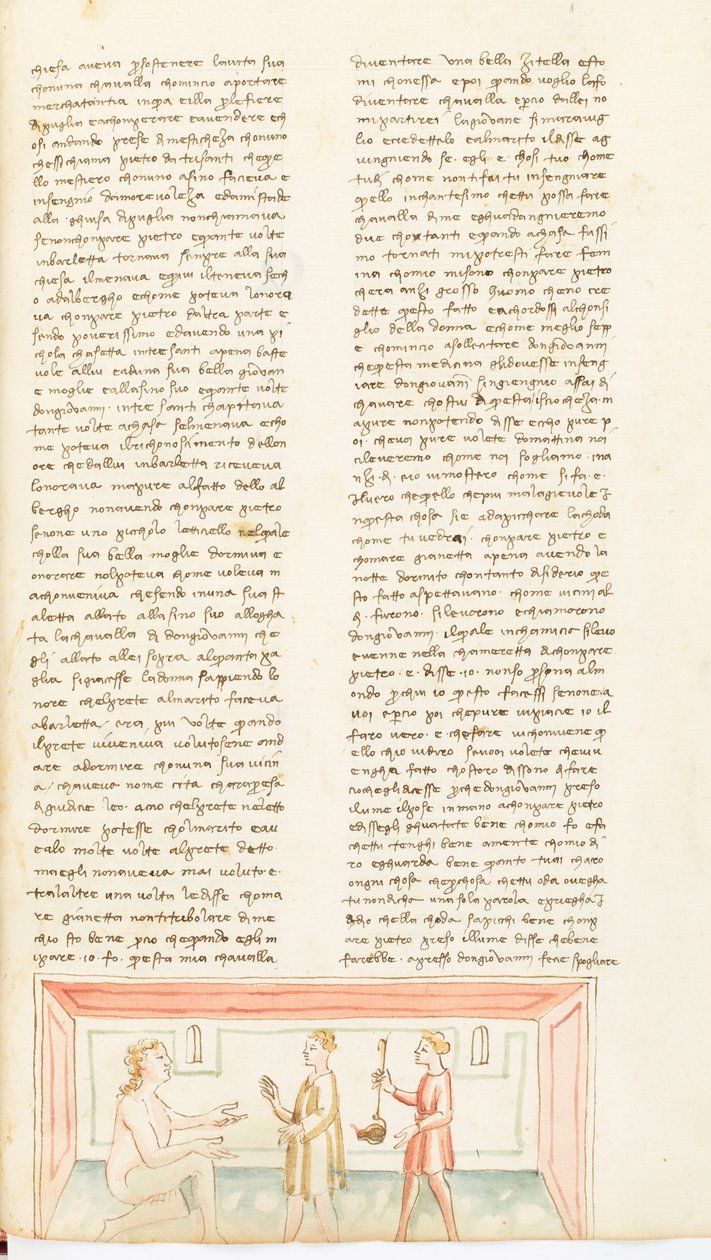 chiesa aveva p sostenere lavita sua
chonuna chavalla chomincio aportare
merchatantia inqua eilla p lefiere
dipuglia eachonperare eavendere ech
osi andando prese dimesticheza chonuno
chessi chiama pietro da tresanti cheque
llo mestiero chonuno asino faceva e
insengnio damorevoleza edamistade
alla ghuisa dipuglia nonchiamava
senonchonpare pietro equante volte
inbarletta tornava senpre alla sua
chiesa ilmenava equivi ilteneva sech
o adalbergho echome poteva lonora
va chonpare pietro daltra parte e
sendo poverissimo edavendo una pi
chola chasetta intresanti apena baste
vole allui eaduna sua bella giovan
e moglie eallasino suo equante volte
dongiovanni intresanti chapitava
tante volte achasa selmenava echo
me poteva ilrichonoscimento dellon
ore chedallui inbarletta riceveva
lonorava mapure alfatto dello al
bergho nonavendo chonpare pietro
senone uno picholo letticiello nelquale
cholla sua bella moglie dormiva e
onorare nolpoteva chome voleva m
achonveniva chesendo inuna sua st
aletta allato allasino suo allogha
ta lachavalla di dongiovanni che
gli allato allei sopra alquanta pa
glia sigiacesse ladonna sappiendo lo
nore chelprete almarito faceva
abarletta era piu volte quando
ilprete viveniva volutosene and
are adormire chonuna sua vicin
a chaveva nome cita charapresa
digiudice leo acio chelprete neletto
dormire potesse cholmarito eav
ealo molte volte alprete detto
maegli nonaveva mai voluto e
tralaltre una volta ledisse choma
re gianetta nontitribolare dime
chio sto bene pcio chequando egli m
ipare io fo questa mia chavalla
diventare una bella zitella esto
mi chonessa epoi quando voglio lafo
diventare chavalla epcio dallei no
mipartirei lagiovane simaravig
lio ecredettelo ealmarito ildisse ag
iungniendo se egli e chosi tuo chome
tudi chome nontifai tu insengniare
quello inchantesimo chettu possa fare
chavalla dime eghuadangnieremo
due chotanti equando achasa fussi
mo tornati mipotresti fare fem
ina chomio misono chonpare pietro
chera anzi grosso huomo cheno cre
dette questo fatto eachordossi alchonsi
glio della donna echome meglio sepp
e chomincio asollecitare dongiovanni
chequesta medicina glidovesse inseng
iare dongiovani singiengnio assai di
chavare chostui diquestaisciocheza m
apure nonpotendo disse eccho pure p
oi cheva pure volete domattina noi
cileveremo chome noi sogliamo ina
nzi di eio vimosterro chome si fa e
ilvero chequello chepiu malagievole i
nquesta chosa sie adapicchare lachoda
chome tu vedrai chonpare pietro e
chomare gianetta apena avendo la
notte dormito chontanto disiderio que
sto fatto aspettavano chome vicin al
di furono silevorono echiamorono
dongiovanni ilquale inchamicia silevo
evenne nella chameretta dichonpare
pietro e disse io nonso psona alm
ondo pchui io questo facessi senonea
voi epcio poi chepure vipiacie io il
faro vero e chefare vichonviene qu
ello chio vidiro sevoi volete cheviv
engha fatto chostoro dissono difare
cioche eglidicesse pchedongiovanni preso
ilume ilpose inmano achonpare pietro
edissegli ghuatate bene chomio fo efa
chettu tenghi bene amente chomio di
ro eghuarda bene quanto tuai charo
ongni chosa chepchosa chettu oda ovegha
tu nondicha una sola parola epriegha i
ddio chella choda sapicchi bene chonp
are pietro preso illume disse chebene
farebbe apresso dongiovanni fece spogliare